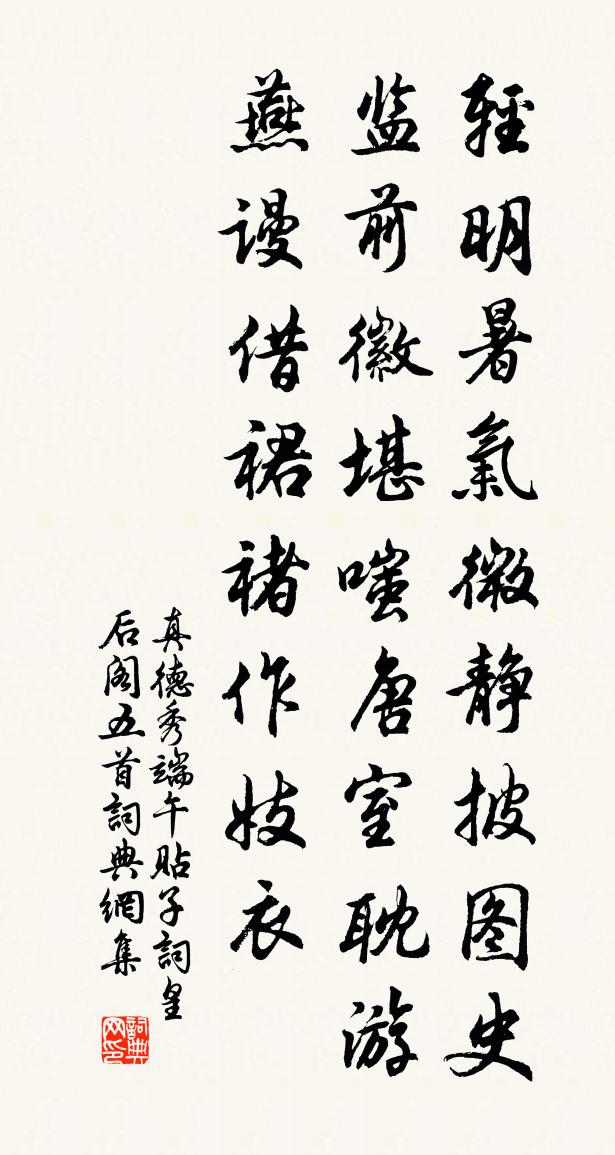 輕明暑氣微静披图史
监前徽堪嗤唐室耽游
燕谩借裙褚作妓衣
真德秀端午貼子詞皇
后阁五首詞典網集
詞典
网印